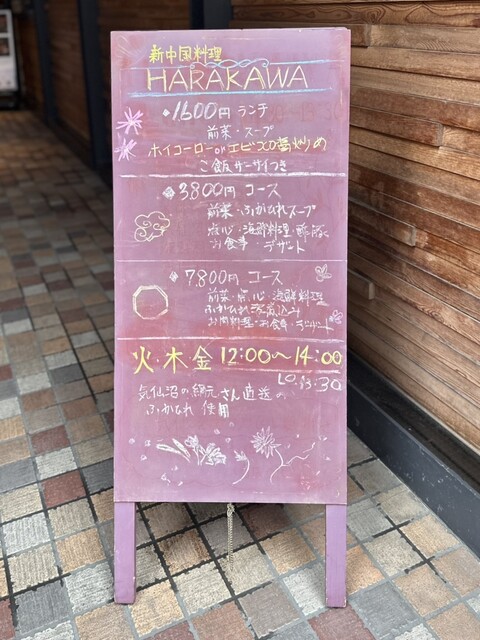 新中国料理
HARAKAWA
1600円 ランチ
前菜・スープ
ホイコーロー or エビ
炒め
ご飯 ザーサイつき
3800円 コース
前菜・ふかひれスープ
点心・海鮮料理・酢豚
お食事・デザート
7800円 コース
前菜・点心・海鮮料理
ふかひれ姿煮込み
お肉料理・お食事・デザート
火・木 金 12:00〜14:00
LO.13:30
気仙沼の網元さん直送の
ふかひれ 使用